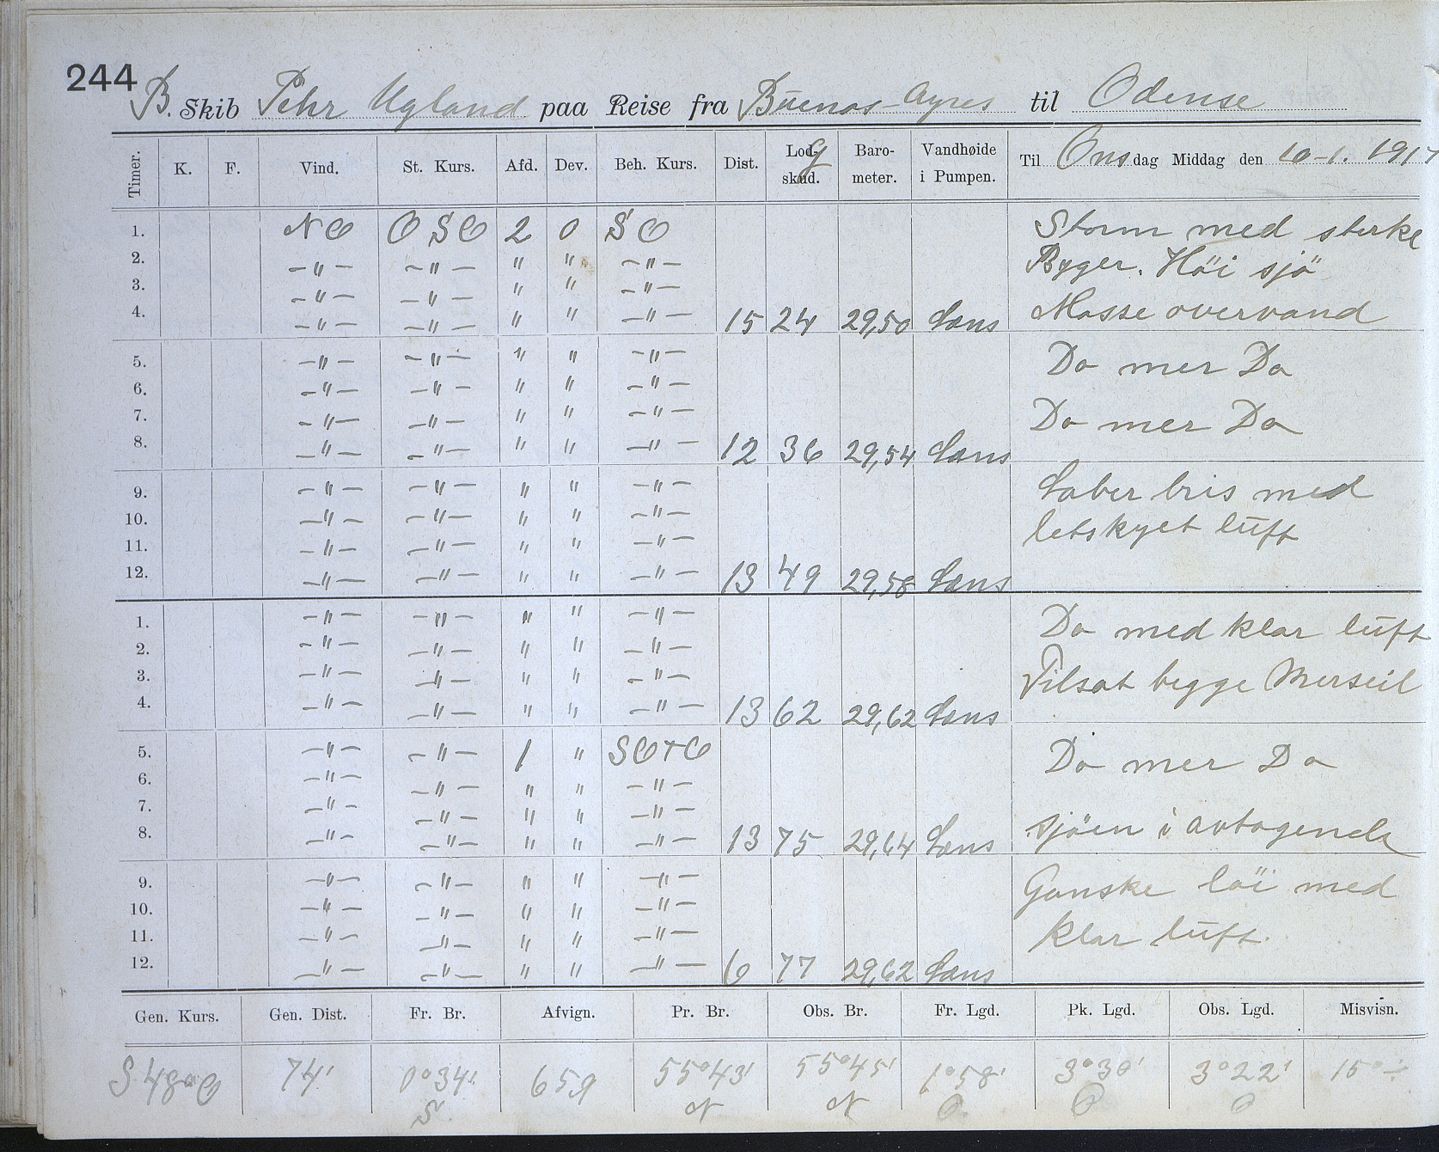 244
B. Skib Pehr Ugland paa Reise fra Buenos-Ayres til Odense
Timer. K. F. Vind. St. Kurs. Afd. Dev. Beh. Kurs. Dist. Lodskud. G Barometer. Vandhøide i Pumpen. Til Onsdag Middag den 10-1. 1917
1. NO OSO 2 0 SO Storm med sterke
2. –"– –"– " " –"– Byger. Høi sjö
3. –"– –"– " " –"–
4. –"– –"– " " –"– 15 24 29,50 Læns Masse overvand
5. –"– –"– " " –"– Do mer Do
6. –"– –"– " " –"–
7. –"– –"– " " –"– Do mer Do
8. –"– –"– " " –"– 12 36 29,54 Læns
9. –"– –"– " " –"– Laber bris med
10. –"– –"– " " –"– letskyet luft
11. –"– –"– " " –"–
12. –"– –"– " " –"– 13 49 29,58 Læns
1. –"– –"– " " –"– Do med klar luft
2. –"– –"– " " –"–
3. –"– –"– " " –"– Tilsat begge Merseil
4. –"– –"– " " –"– 13 62 29,62 Læns
5. –"– –"– 1 " SOtO Do mer Do
6. –"– –"– " " –"–
7. –"– –"– " " –"–
8. –"– –"– " " –"– 13 75 29,64 Læns sjöen i avtagende
9. –"– –"– " " –"– Ganske löi med
10. –"– –"– " " –"–
11. –"– –"– " " –"– klar luft.
12. –"– –"– " " –"– 6 77 29,62 Læns
Gen. Kurs. Gen. Dist. Fr. Br. Afvign. Pr. Br. Obs. Br. Fr. Lgd. Pk. Lgd. Obs. Lgd. Misvisn.
S 48° O 74' 0°34' S 659 55°43' N 55°45' N 1°58' O 3°30' O 3°22' O 15°